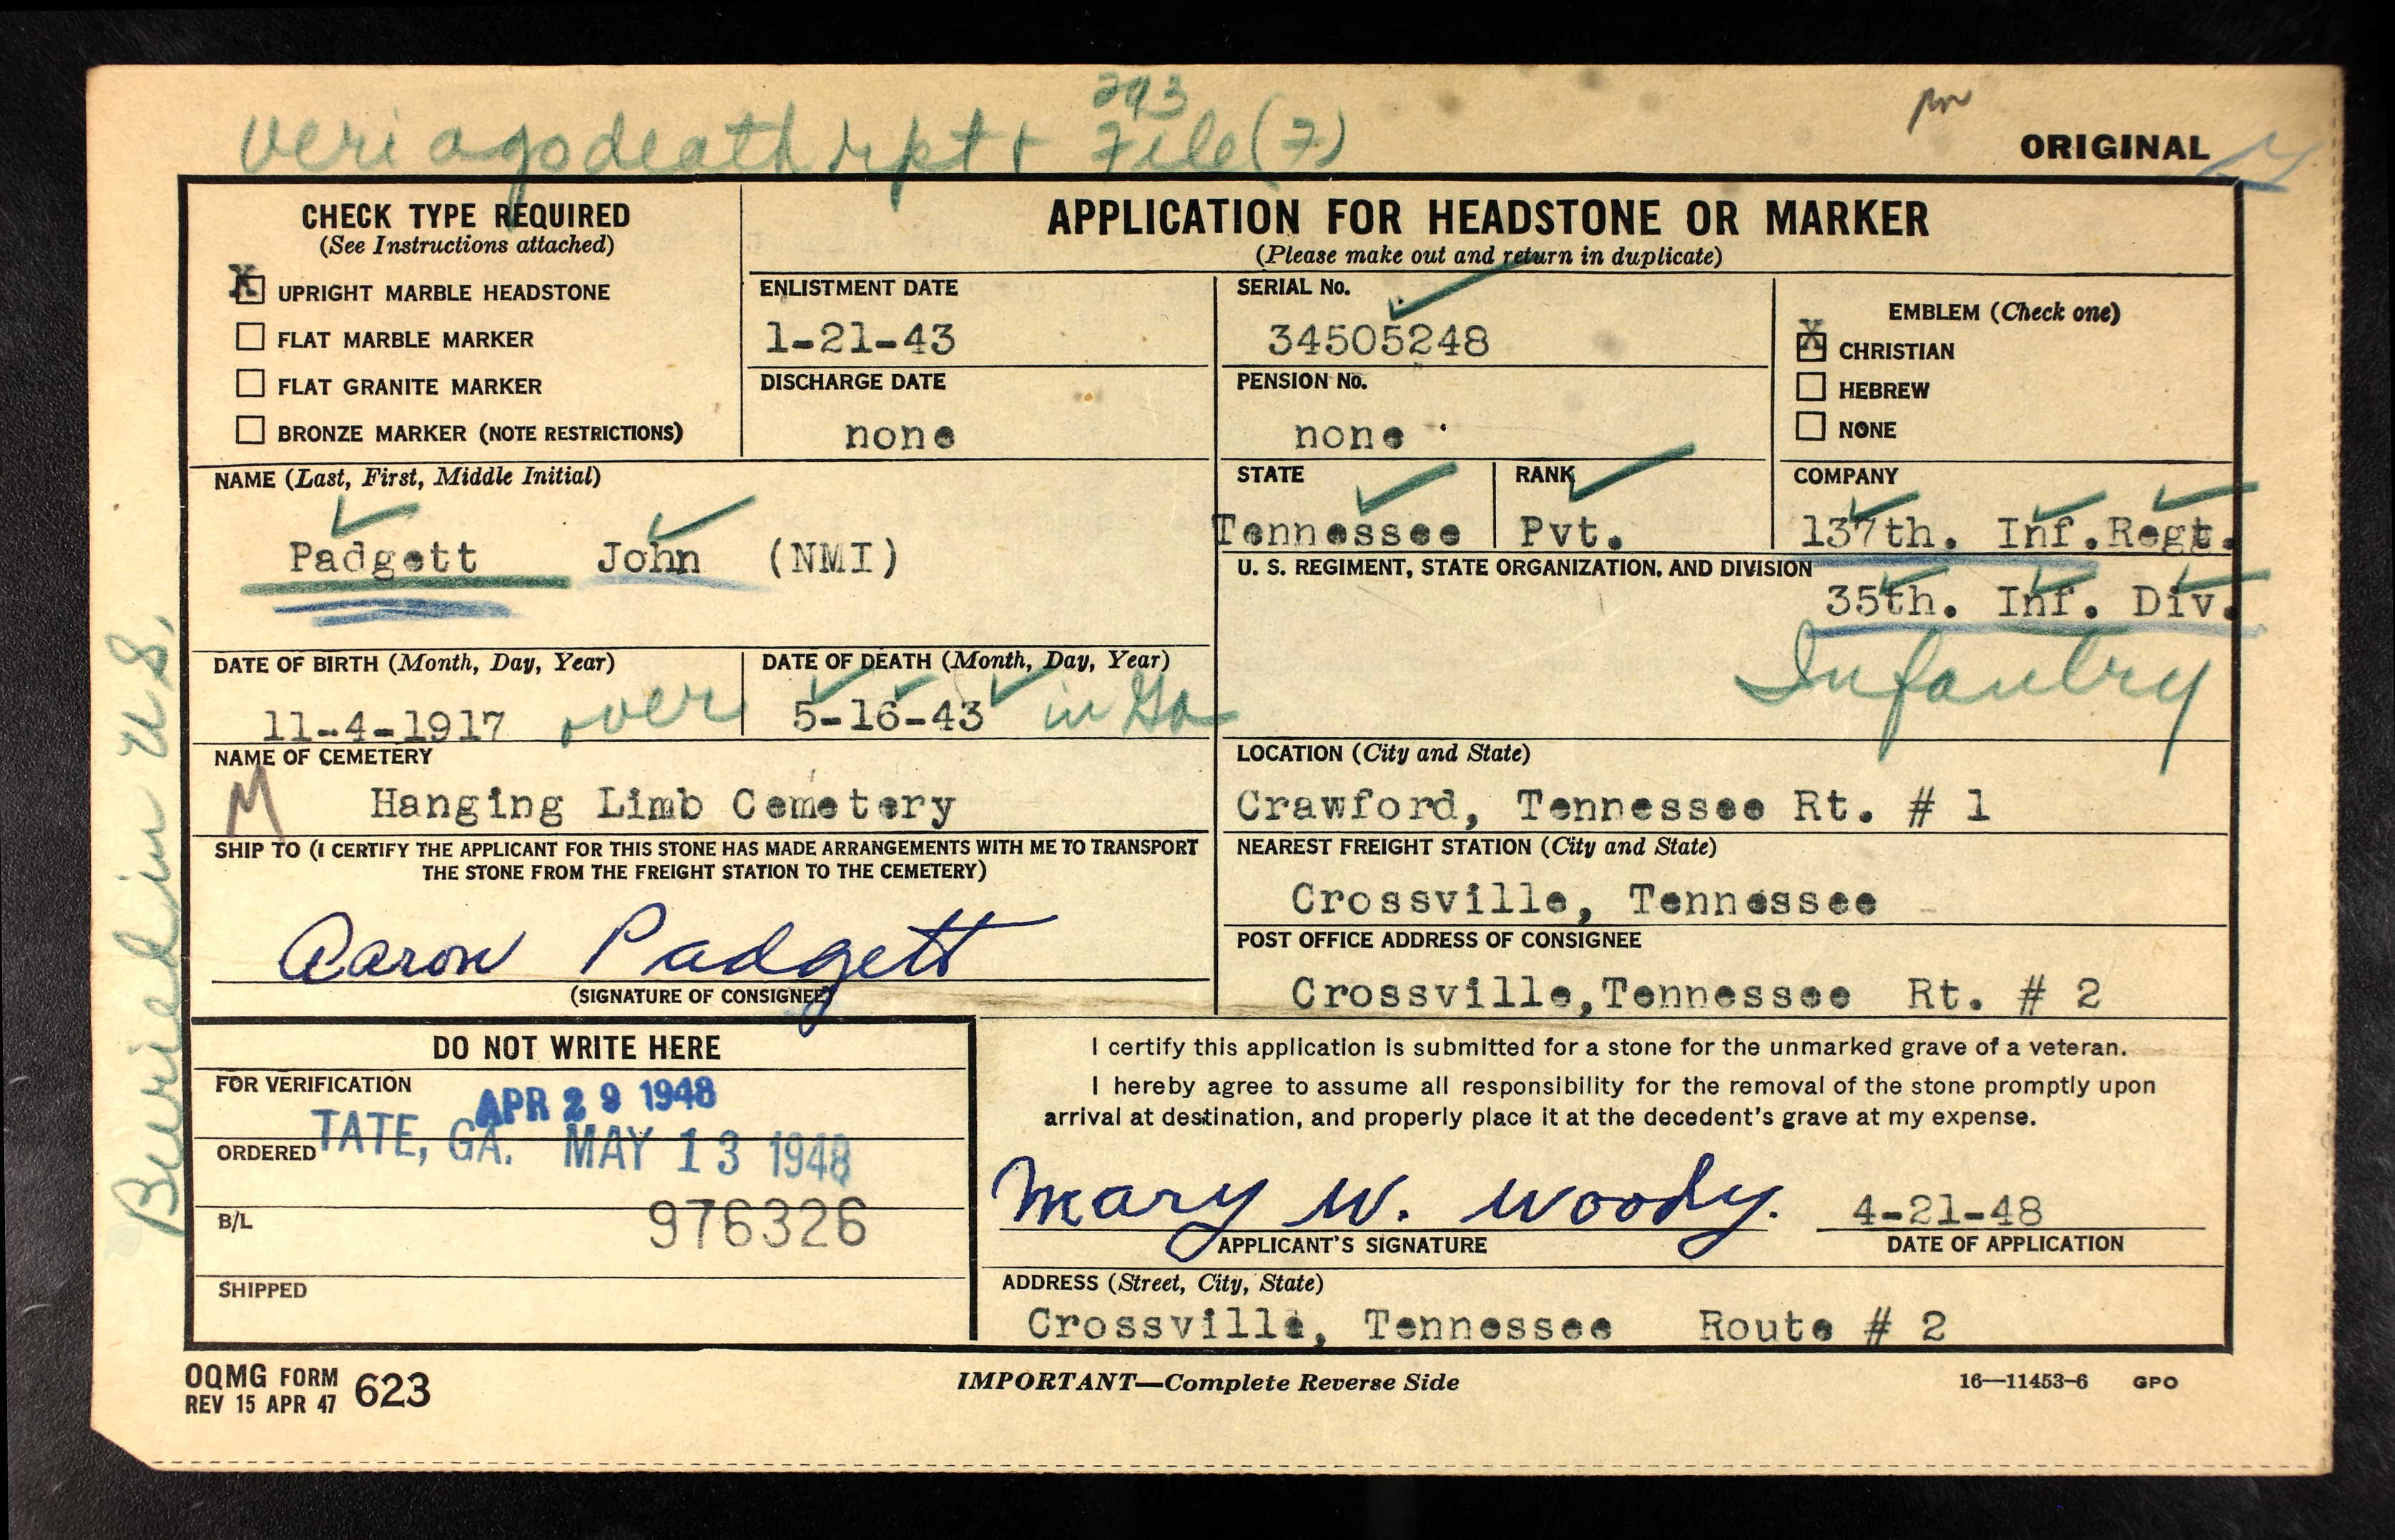 293
veri ago death rpt + File (7)
ORIGINAL
CHECK TYPE REQUIRED
(See Instructions attached)
X UPRIGHT MARBLE HEADSTONE
FLAT MARBLE MARKER
FLAT GRANITE MARKER
BRONZE MARKER (NOTE RESTRICTIONS)
APPLICATION FOR HEADSTONE OR MARKER
(Please make out and return in duplicate)
ENLISTMENT DATE
1-21-43
DISCHARGE DATE
none
SERIAL No.
34505248
PENSION No.
none
EMBLEM (Check one)
X CHRISTIAN
HEBREW
NONE
NAME (Last, First, Middle Initial)
Padgett John (NMI)
STATE
Tennessee
RANK
Pvt.
COMPANY
137th. Inf. Regt.
U. S. REGIMENT, STATE ORGANIZATION, AND DIVISION
35th. Inf. Div.
Infantry
DATE OF BIRTH (Month, Day, Year)
11-4-1917 over
DATE OF DEATH (Month, Day, Year)
5-16-43 in Ga
NAME OF CEMETERY
M Hanging Limb Cemetery
LOCATION (City and State)
Crawford, Tennessee Rt. # 1
SHIP TO (I CERTIFY THE APPLICANT FOR THIS STONE HAS MADE ARRANGEMENTS WITH ME TO TRANSPORT
THE STONE FROM THE FREIGHT STATION TO THE CEMETERY)
Aaron Padgett
(SIGNATURE OF CONSIGNEE)
NEAREST FREIGHT STATION (City and State)
Crossville, Tennessee
POST OFFICE ADDRESS OF CONSIGNEE
Crossville,Tennessee Rt. # 2
Buried in U.S.
DO NOT WRITE HERE
FOR VERIFICATION
APR 29 1948
ORDERED TATE, GA. MAY 13 1948
B/L
976326
SHIPPED
I certify this application is submitted for a stone for the unmarked grave of a veteran.
I hereby agree to assume all responsibility for the removal of the stone promptly upon
arrival at destination, and properly place it at the decedent's grave at my expense.
Mary W. Woody. 4-21-48
APPLICANT'S SIGNATURE DATE OF APPLICATION
ADDRESS (Street, City, State)
Crossville, Tennessee Route # 2
OQMG FORM 623
REV 15 APR 47
IMPORTANT—Complete Reverse Side
16—11453-6 GPO